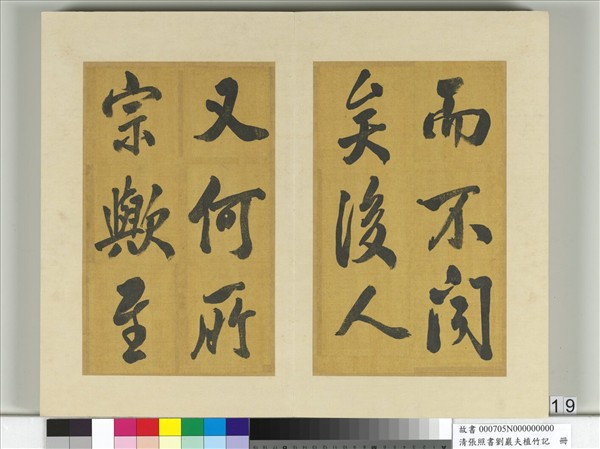 而不聞
矣後人
又何所
宗歟至
19
故書 000705N000000000
清張照書劉巖夫植竹記 冊